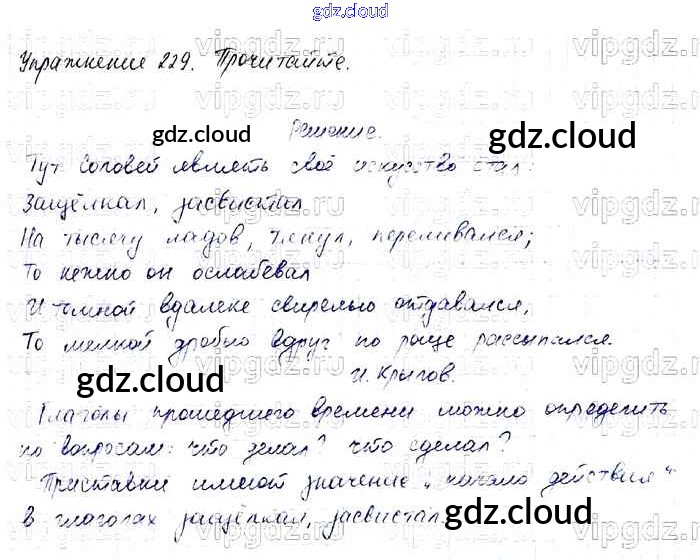 gdz.cloud
Упражнение 229. Прочитайте.
Решение.
Тут Соловей являть своё искусство стал:
Защёлкал, засвистал
На тысячу ладов, тянул, переливался;
То нежно он ослабевал
И томной вдалеке свирелью отдавался,
То мелкой дробью вдруг по роще рассыпался.
И. Крылов.
Глаголы прошедшего времени можно определить
по вопросам: что делал? что сделал?
Приставки имеют значение „начало действия"
в глаголах защёлкал, засвистал.
gdz.cloud
gdz.cloud
gdz.cloud
gdz.cloud
gdz.cloud
vipgdz.ru